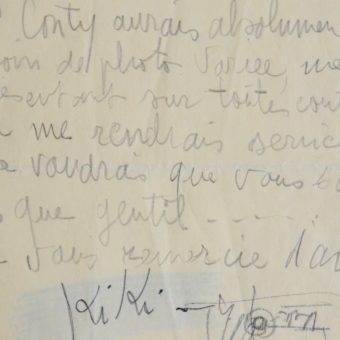 Conty aurais absolumen
de photo Variée, me
sur toutes cou
me rendrais servic
voudrais que vous
que gentil -----
Vous remercie d'a
Kiki